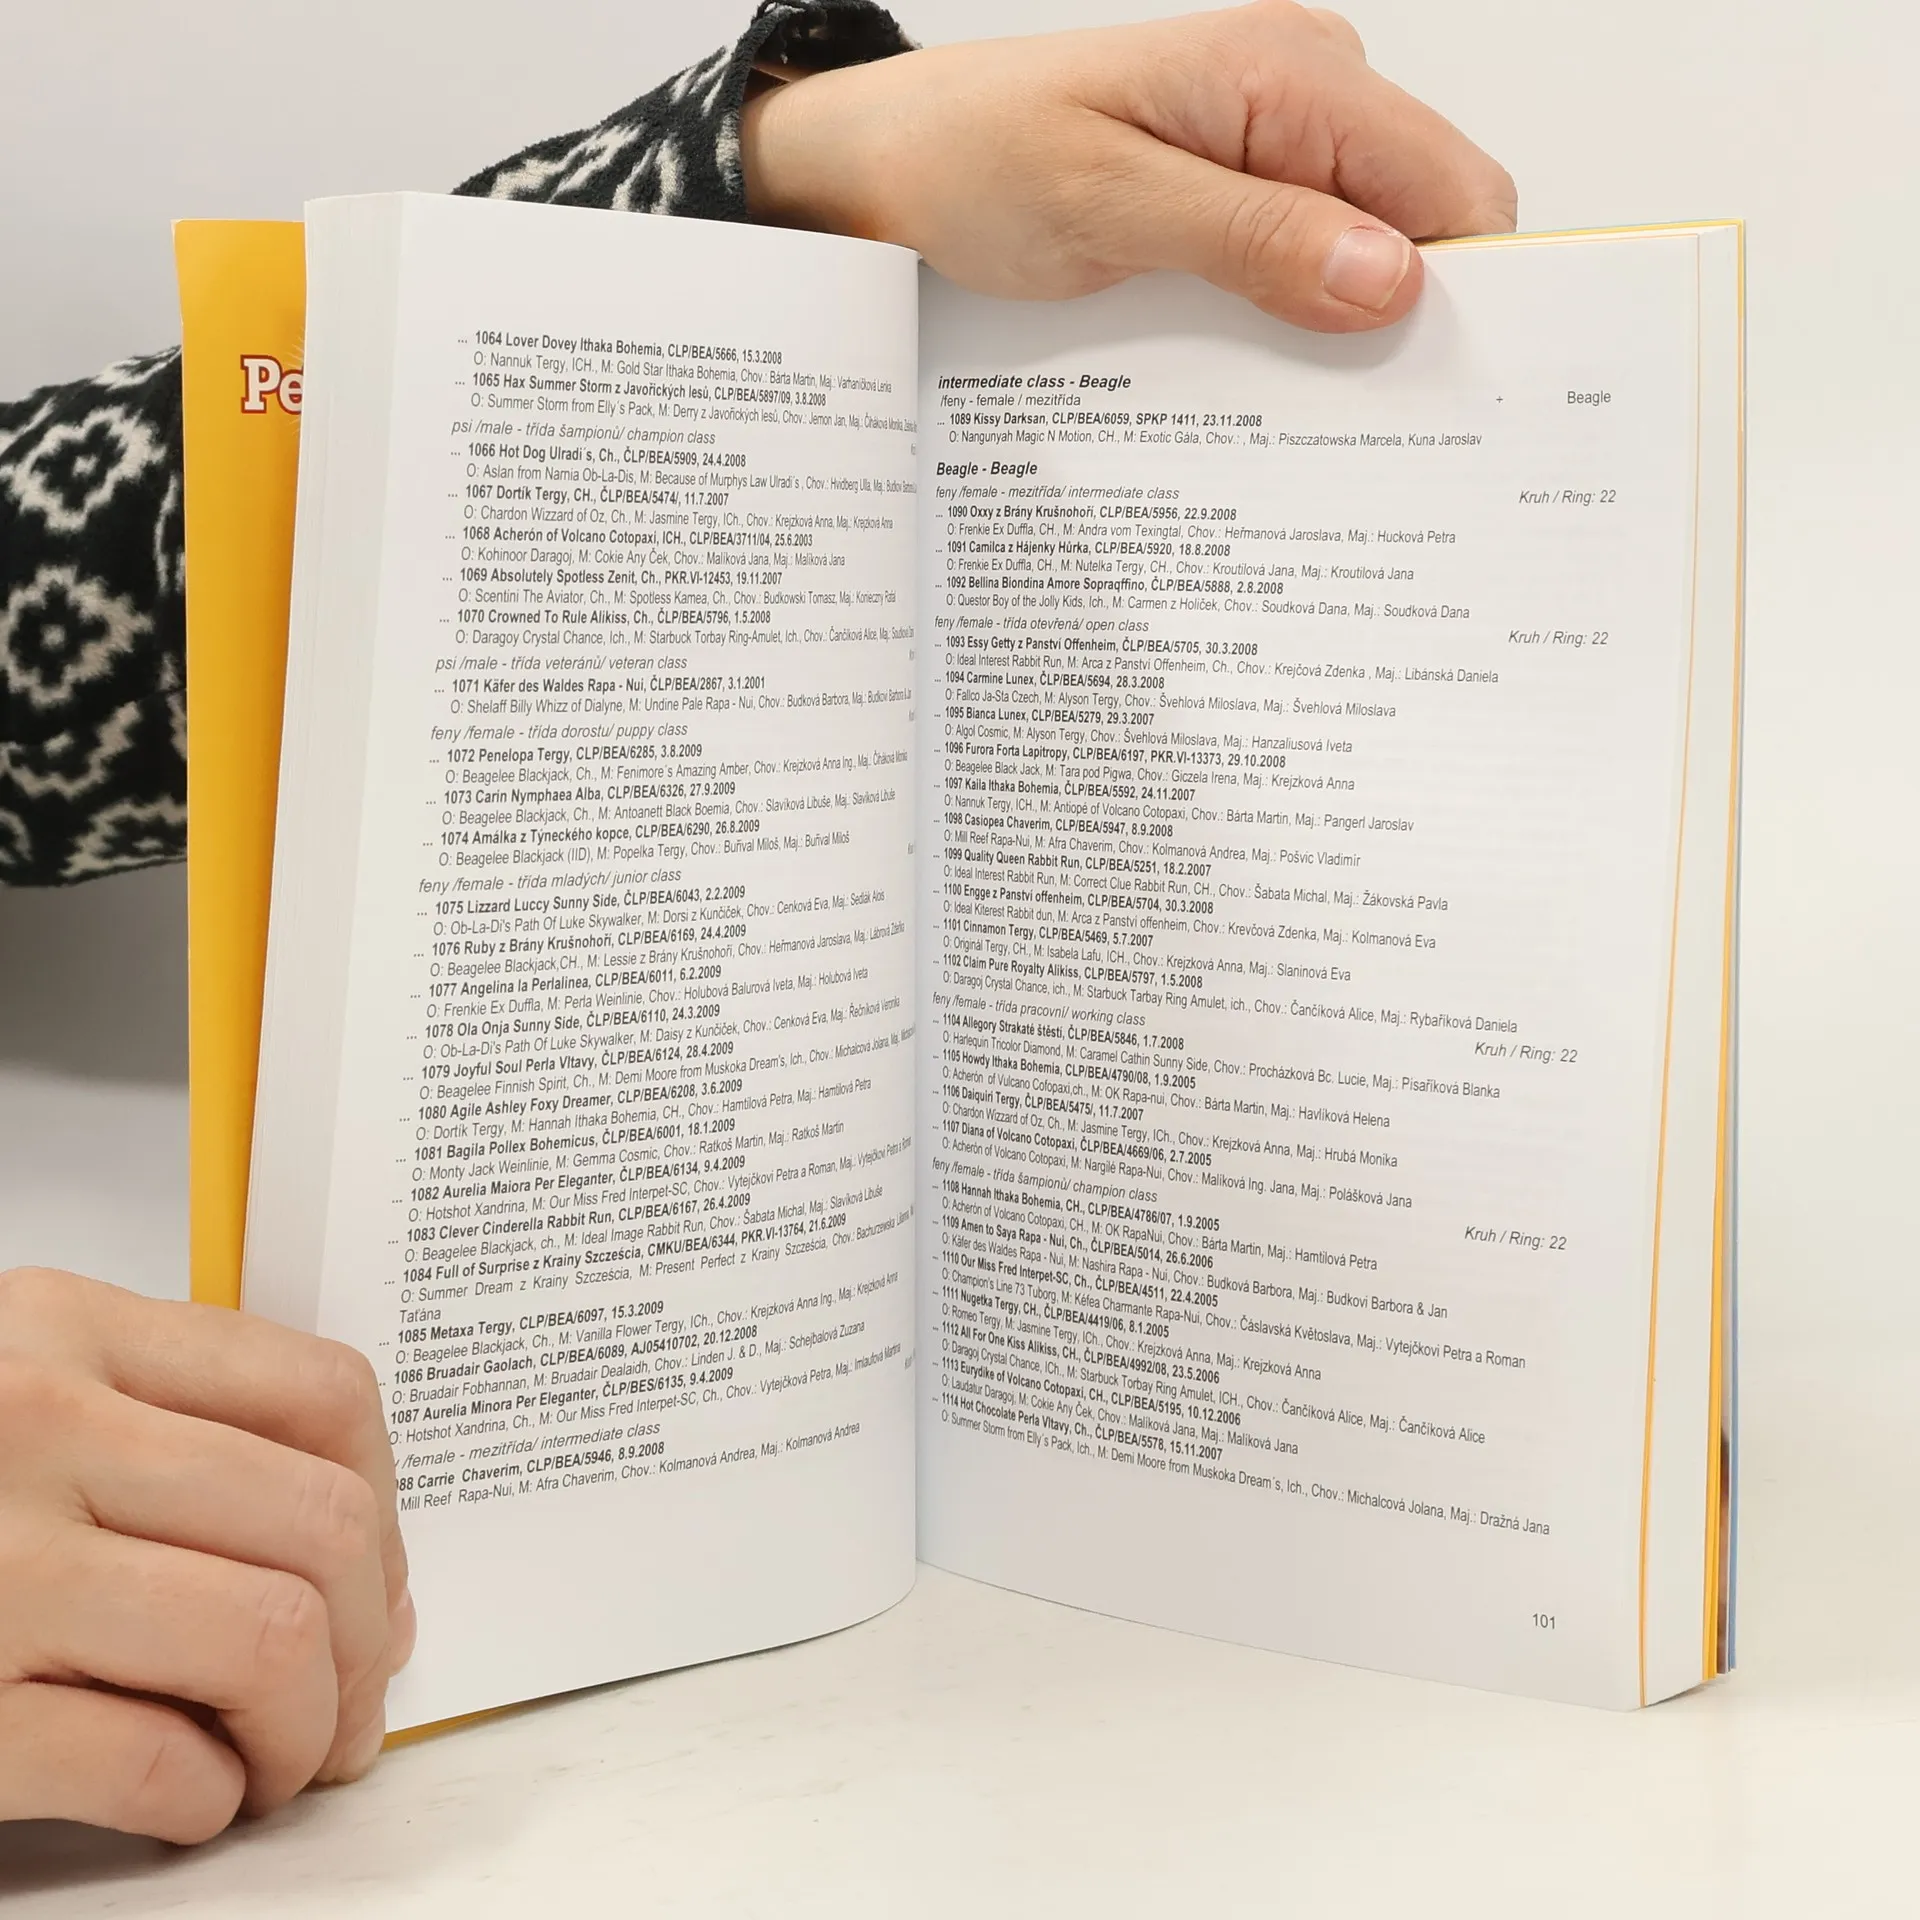 Pe
... 1064 Lover Dovey Ithaka Bohemia, CLP/BEA/5666, 15.3.2008
O: Nannuk Tergy, ICH., M: Gold Star Ithaka Bohemia, Chov.: Bárta Martin, Maj.: Varhaníčková Lenka
... 1065 Hax Summer Storm z Javořických lesů, CLP/BEA/5897/09, 3.8.2008
O: Summer Storm from Elly´s Pack, M: Derry z Javořických lesů, Chov.: Jemon Jan, Maj.: Čiháková Monika,
psi /male - třída šampionů/ champion class
... 1066 Hot Dog Ulradi´s, Ch., ČLP/BEA/5909, 24.4.2008
O: Aslan from Narnia Ob-La-Dis, M: Because of Murphys Law Ulradi´s , Chov.: Hvidberg Ulla, Maj.: Budkovi
... 1067 Dortík Tergy, CH., ČLP/BEA/5474/, 11.7.2007
O: Chardon Wizzard of Oz, Ch., M: Jasmine Tergy, ICh., Chov.: Krejzková Anna, Maj.: Krejzková Anna
... 1068 Acherón of Volcano Cotopaxi, ICH., CLP/BEA/3711/04, 25.6.2003
O: Kohinoor Daragoj, M: Cokie Any Ček, Chov.: Malíková Jana, Maj.: Malíková Jana
... 1069 Absolutely Spotless Zenit, Ch., PKR.VI-12453, 19.11.2007
O: Scentini The Aviator, Ch., M: Spotless Kamea, Ch., Chov.: Budkowski Tomasz, Maj.: Konieczny Rafal
... 1070 Crowned To Rule Alikiss, Ch., ČLP/BEA/5796, 1.5.2008
O: Daragoy Crystal Chance, Ich., M: Starbuck Torbay Ring-Amulet, Ich., Chov.: Čančíková Alice, Maj.:
psi /male - třída veteránů/ veteran class
... 1071 Käfer des Waldes Rapa - Nui, ČLP/BEA/2867, 3.1.2001
O: Shelaff Billy Whizz of Dialyne, M: Undine Pale Rapa - Nui, Chov.: Budková Barbora, Maj.: Budkovi Barbora
feny /female - třída dorostu/ puppy class
... 1072 Penelopa Tergy, CLP/BEA/6285, 3.8.2009
O: Beagelee Blackjack, Ch., M: Fenimore´s Amazing Amber, Chov.: Krejzková Anna Ing., Maj.: Čiháková Monika
... 1073 Carin Nymphaea Alba, CLP/BEA/6326, 27.9.2009
O: Beagelee Blackjack, Ch., M: Antoanett Black Boemia, Chov.: Slavíková Libuše, Maj.: Slavíková Libuše
... 1074 Amálka z Týneckého kopce, CLP/BEA/6290, 26.8.2009
O: Beagelee Blackjack (IID), M: Popelka Tergy, Chov.: Buřival Miloš, Maj.: Buřival Miloš
feny /female - třída mladých/ junior class
... 1075 Lizzard Luccy Sunny Side, ČLP/BEA/6043, 2.2.2009
O: Ob-La-Di's Path Of Luke Skywalker, M: Dorsi z Kunčiček, Chov.: Cenková Eva, Maj.: Sedlák Alois
... 1076 Ruby z Brány Krušnohoří, CLP/BEA/6169, 24.4.2009
O: Beagelee Blackjack,CH., M: Lessie z Brány Krušnohoří, Chov.: Heřmanová Jaroslava, Maj.: Lábrová Zdeňka
... 1077 Angelina la Perlalinea, CLP/BEA/6011, 6.2.2009
O: Frenkie Ex Duffla, M: Perla Weinlinie, Chov.: Holubová Balurová Iveta, Maj.: Holubová Iveta
... 1078 Ola Onja Sunny Side, ČLP/BEA/6110, 24.3.2009
O: Ob-La-Di's Path Of Luke Skywalker, M: Daisy z Kunčiček, Chov.: Cenková Eva, Maj.: Řečníková Veronika
... 1079 Joyful Soul Perla Vltavy, ČLP/BEA/6124, 28.4.2009
O: Beagelee Finnish Spirit, Ch., M: Demi Moore from Muskoka Dream's, Ich., Chov.: Michalcová Jolana, Maj.:
... 1080 Agile Ashley Foxy Dreamer, CLP/BEA/6208, 3.6.2009
O: Dortík Tergy, M: Hannah Ithaka Bohemia, CH., Chov.: Hamtilová Petra, Maj.: Hamtilová Petra
... 1081 Bagila Pollex Bohemicus, ČLP/BEA/6001, 18.1.2009
O: Monty Jack Weinlinie, M: Gemma Cosmic, Chov.: Ratkoš Martin, Maj.: Ratkoš Martin
... 1082 Aurelia Maiora Per Eleganter, ČLP/BEA/6134, 9.4.2009
O: Hotshot Xandrina, M: Our Miss Fred Interpet-SC, Chov.: Vytejčkovi Petra a Roman, Maj.: Vytejčkovi Petra a Roman
... 1083 Clever Cinderella Rabbit Run, CLP/BEA/6167, 26.4.2009
O: Beagelee Blackjack, ch., M: Ideal Image Rabbit Run, Chov.: Šabata Michal, Maj.: Slavíková Libuše
... 1084 Full of Surprise z Krainy Szcześcia, CMKU/BEA/6344, PKR.VI-13764, 21.6.2009
O: Summer Dream z Krainy Szcześcia, M: Present Perfect z Krainy Szcześcia, Chov.: Bachurzewska Liliana,
Taťána
... 1085 Metaxa Tergy, CLP/BEA/6097, 15.3.2009
O: Beagelee Blackjack, Ch., M: Vanilla Flower Tergy, ICh., Chov.: Krejzková Anna Ing., Maj.: Krejzková Anna
.. 1086 Bruadair Gaolach, CLP/BEA/6089, AJ05410702, 20.12.2008
O: Bruadair Fobhannan, M: Bruadair Dealaidh, Chov.: Linden J. & D., Maj.: Schejbalová Zuzana
1087 Aurelia Minora Per Eleganter, ČLP/BES/6135, 9.4.2009
O: Hotshot Xandrina, Ch., M: Our Miss Fred Interpet-SC, Ch., Chov.: Vytejčková Petra, Maj.: Imlaufová Martina
/female - mezitřída/ intermediate class
088 Carrie Chaverim, CLP/BEA/5946, 8.9.2008
Mill Reef Rapa-Nui, M: Afra Chaverim, Chov.: Kolmanová Andrea, Maj.: Kolmanová Andrea
+ Beagle
intermediate class - Beagle
/feny - female / mezitřída
... 1089 Kissy Darksan, CLP/BEA/6059, SPKP 1411, 23.11.2008
O: Nangunyah Magic N Motion, CH., M: Exotic Gála, Chov.: , Maj.: Piszczatowska Marcela, Kuna Jaroslav
Beagle - Beagle
feny /female - mezitřída/ intermediate class Kruh / Ring: 22
... 1090 Oxxy z Brány Krušnohoří, CLP/BEA/5956, 22.9.2008
O: Frenkie Ex Duffla, CH., M: Andra vom Texingtal, Chov.: Heřmanová Jaroslava, Maj.: Hucková Petra
... 1091 Camilca z Hájenky Hůrka, CLP/BEA/5920, 18.8.2008
O: Frenkie Ex Duffla, CH., M: Nutelka Tergy, CH., Chov.: Kroutilová Jana, Maj.: Kroutilová Jana
... 1092 Bellina Blondina Amore Sopraqffino, ČLP/BEA/5888, 2.8.2008
O: Questor Boy of the Jolly Kids, Ich., M: Carmen z Holiček, Chov.: Soudková Dana, Maj.: Soudková Dana
feny /female - třída otevřená/ open class Kruh / Ring: 22
... 1093 Essy Getty z Panství Offenheim, ČLP/BEA/5705, 30.3.2008
O: Ideal Interest Rabbit Run, M: Arca z Panství Offenheim, Ch., Chov.: Krejčová Zdenka , Maj.: Libánská Daniela
... 1094 Carmine Lunex, ČLP/BEA/5694, 28.3.2008
O: Fallco Ja-Sta Czech, M: Alyson Tergy, Chov.: Švehlová Miloslava, Maj.: Švehlová Miloslava
... 1095 Bianca Lunex, CLP/BEA/5279, 29.3.2007
O: Algol Cosmic, M: Alyson Tergy, Chov.: Švehlová Miloslava, Maj.: Hanzaliusová Iveta
... 1096 Furora Forta Lapitropy, CLP/BEA/6197, PKR.VI-13373, 29.10.2008
O: Beagelee Black Jack, M: Tara pod Pigwa, Chov.: Giczela Irena, Maj.: Krejzková Anna
... 1097 Kaila Ithaka Bohemia, ČLP/BEA/5592, 24.11.2007
O: Nannuk Tergy, ICH., M: Antiopé of Volcano Cotopaxi, Chov.: Bárta Martin, Maj.: Pangerl Jaroslav
... 1098 Casiopea Chaverim, CLP/BEA/5947, 8.9.2008
O: Mill Reef Rapa-Nui, M: Afra Chaverim, Chov.: Kolmanová Andrea, Maj.: Pošvic Vladimír
... 1099 Quality Queen Rabbit Run, CLP/BEA/5251, 18.2.2007
O: Ideal Interest Rabbit Run, M: Correct Clue Rabbit Run, CH., Chov.: Šabata Michal, Maj.: Žákovská Pavla
... 1100 Engge z Panství offenheim, CLP/BEA/5704, 30.3.2008
O: Ideal Kiterest Rabbit dun, M: Arca z Panství offenheim, Chov.: Krevčová Zdenka, Maj.: Kolmanová Eva
... 1101 Cinnamon Tergy, CLP/BEA/5469, 5.7.2007
O: Originál Tergy, CH., M: Isabela Lafu, ICH., Chov.: Krejzková Anna, Maj.: Slaninová Eva
... 1102 Claim Pure Royalty Alikiss, CLP/BEA/5797, 1.5.2008
O: Daragoj Crystal Chance, ich., M: Starbuck Tarbay Ring Amulet, ich., Chov.: Čančíková Alice, Maj.: Rybaříková Daniela
feny /female - třída pracovní/ working class Kruh / Ring: 22
... 1104 Allegory Strakaté štěstí, ČLP/BEA/5846, 1.7.2008
O: Harlequin Tricolor Diamond, M: Caramel Cathin Sunny Side, Chov.: Procházková Bc. Lucie, Maj.: Písaříková Blanka
... 1105 Howdy Ithaka Bohemia, CLP/BEA/4790/08, 1.9.2005
O: Acherón of Vulcano Cofopaxi,ch., M: OK Rapa-nui, Chov.: Bárta Martin, Maj.: Havlíková Helena
... 1106 Daiquiri Tergy, ČLP/BEA/5475/, 11.7.2007
O: Chardon Wizzard of Oz, Ch., M: Jasmine Tergy, ICh., Chov.: Krejzková Anna, Maj.: Hrubá Monika
... 1107 Diana of Volcano Cotopaxi, ČLP/BEA/4669/06, 2.7.2005
O: Acherón of Volcano Cotopaxi, M: Nargilé Rapa-Nui, Chov.: Malíková Ing. Jana, Maj.: Polášková Jana
feny /female - třída šampionů/ champion class Kruh / Ring: 22
... 1108 Hannah Ithaka Bohemia, CH., CLP/BEA/4786/07, 1.9.2005
O: Acherón of Volcano Cotopaxi, CH., M: OK RapaNui, Chov.: Bárta Martin, Maj.: Hamtilová Petra
... 1109 Amen to Saya Rapa - Nui, Ch., ČLP/BEA/5014, 26.6.2006
O: Käfer des Waldes Rapa - Nui, M: Nashira Rapa - Nui, Chov.: Budková Barbora, Maj.: Budkovi Barbora & Jan
... 1110 Our Miss Fred Interpet-SC, Ch., ČLP/BEA/4511, 22.4.2005
O: Champion's Line 73 Tuborg, M: Kéfea Charmante Rapa-Nui, Chov.: Čáslavská Květoslava, Maj.: Vytejčkovi Petra a Roman
... 1111 Nugetka Tergy, CH., ČLP/BEA/4419/06, 8.1.2005
O: Romeo Tergy, M: Jasmine Tergy, ICh., Chov.: Krejzková Anna, Maj.: Krejzková Anna
... 1112 All For One Kiss Alikiss, CH., ČLP/BEA/4992/08, 23.5.2006
O: Daragoj Crystal Chance, ICh., M: Starbuck Torbay Ring Amulet, ICH., Chov.: Čančíková Alice, Maj.: Čančíková Alice
... 1113 Eurydike of Volcano Cotopaxi, CH., CLP/BEA/5195, 10.12.2006
O: Laudatur Daragoj, M: Cokie Any Ček, Chov.: Malíková Jana, Maj.: Malíková Jana
... 1114 Hot Chocolate Perla Vltavy, Ch., ČLP/BEA/5578, 15.11.2007
O: Summer Storm from Elly´s Pack, Ich., M: Demi Moore from Muskoka Dream´s, Ich., Chov.: Michalcová Jolana, Maj.: Dražná Jana
101